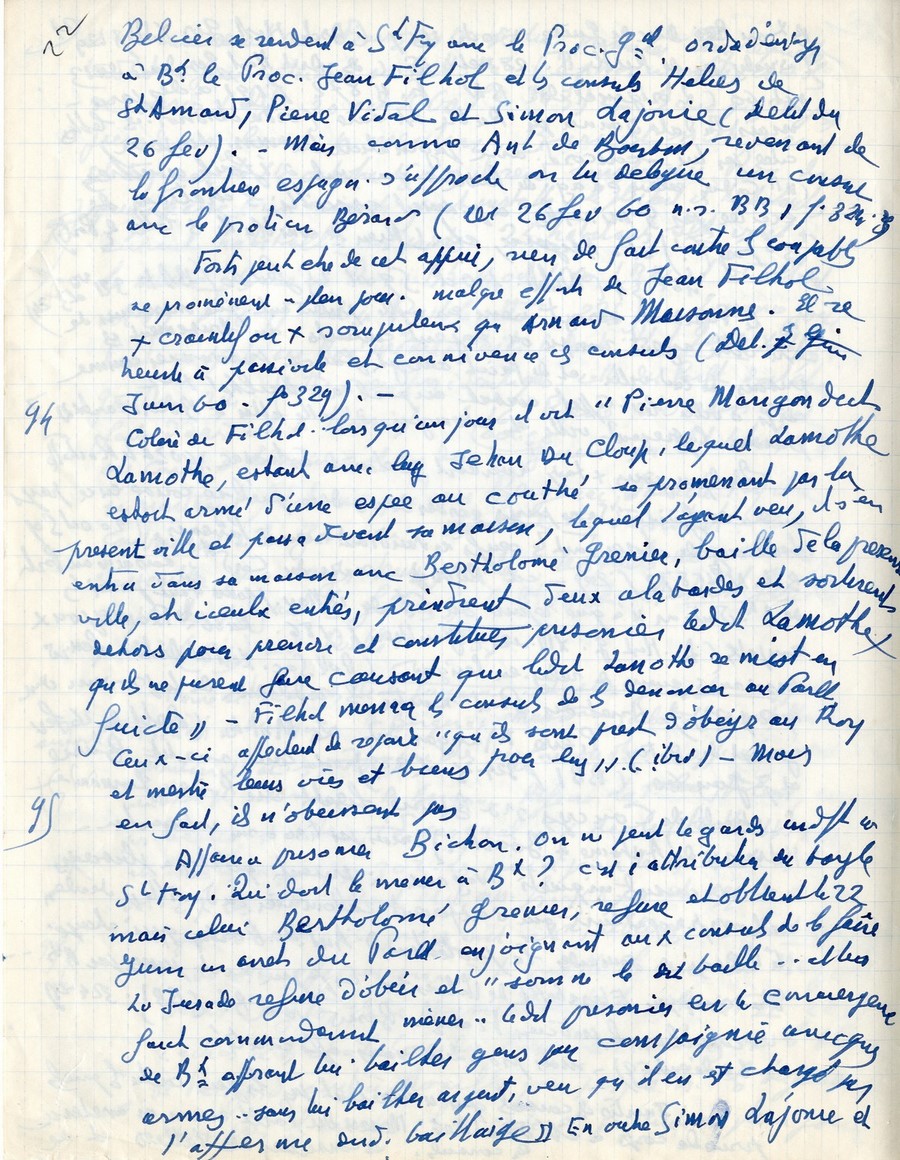 22
Belcier se rendent à St Fy avec le Proc. Gal
à Bx le Proc. Jean Filhol et ls consuls Helies de
St Amand, Pierre Vidal et Simon Lajonie (Delib du
26 fev). - Mais comme Ant de Bourbon, revenant de
la frontiere espagn. s'approche on lui delegue un consul
avec le praticien Bérard ( 26 fev 60 n.s. BB 1 f. 324.
Forts peut etre de cet appui, rien de fait contre ls coupables
se promènent plein jour. malgré effts de Jean Filhol
+ craintif ou + scrupuleux qu Arnaud Maisonne. Il se
heurte à passivité et connivence des consuls (Del.
Juin 60. fo 329). -
94
Colère de Filhol.. lorsqu'un jour il voit "Pierre Mangon dict
Lamothe, estant avec luy Jehan Du Cloup, lequel Lamothe
estoit armé d'une espee au couthé se promenant par la
present ville et passa devant sa maison, lequel l'ayant veu, il s'en
entra dans sa maison avec Bertholomé Grenier, baille de la present
ville, et iceulx entrés, prindrent deux alabardes et sortirent
dehors pour prendre et constituer prisonier ledit Lamothe
qu'ils ne purent faire causant que ledit Lamothe se mist en
fuicte" - Filhol menaça ls consuls de ls denoncer au Parlt
Ceux-ci affectent de repartir "qu'ils sont prest d'obéyr au Roy
et mestre leurs vies et biens pour luy". (ibid) - Mais
en fait, ils n'obeissent pas
95
Affaire prisonnier Bichon. On ne peut le garder
St Fy. Qui doit le mener à Bx ? c'est attribution du bayle
mais celui Bertholomé Grenier, refuse et obtient le 22
Juin un arret du Parlt enjoignant aux consuls de le faire
La Jurade refuse d'obéir et "somme le dit baille ..
faict commandement mener .. ledit prisonier en la conciergerie
de Bx offrant lui bailher gens par compaignie avecques
armes .. sans lui bailher argent, veu qu'il en est chargé par
l'afferme dud. baillaige" En outre Simon Lajonie et